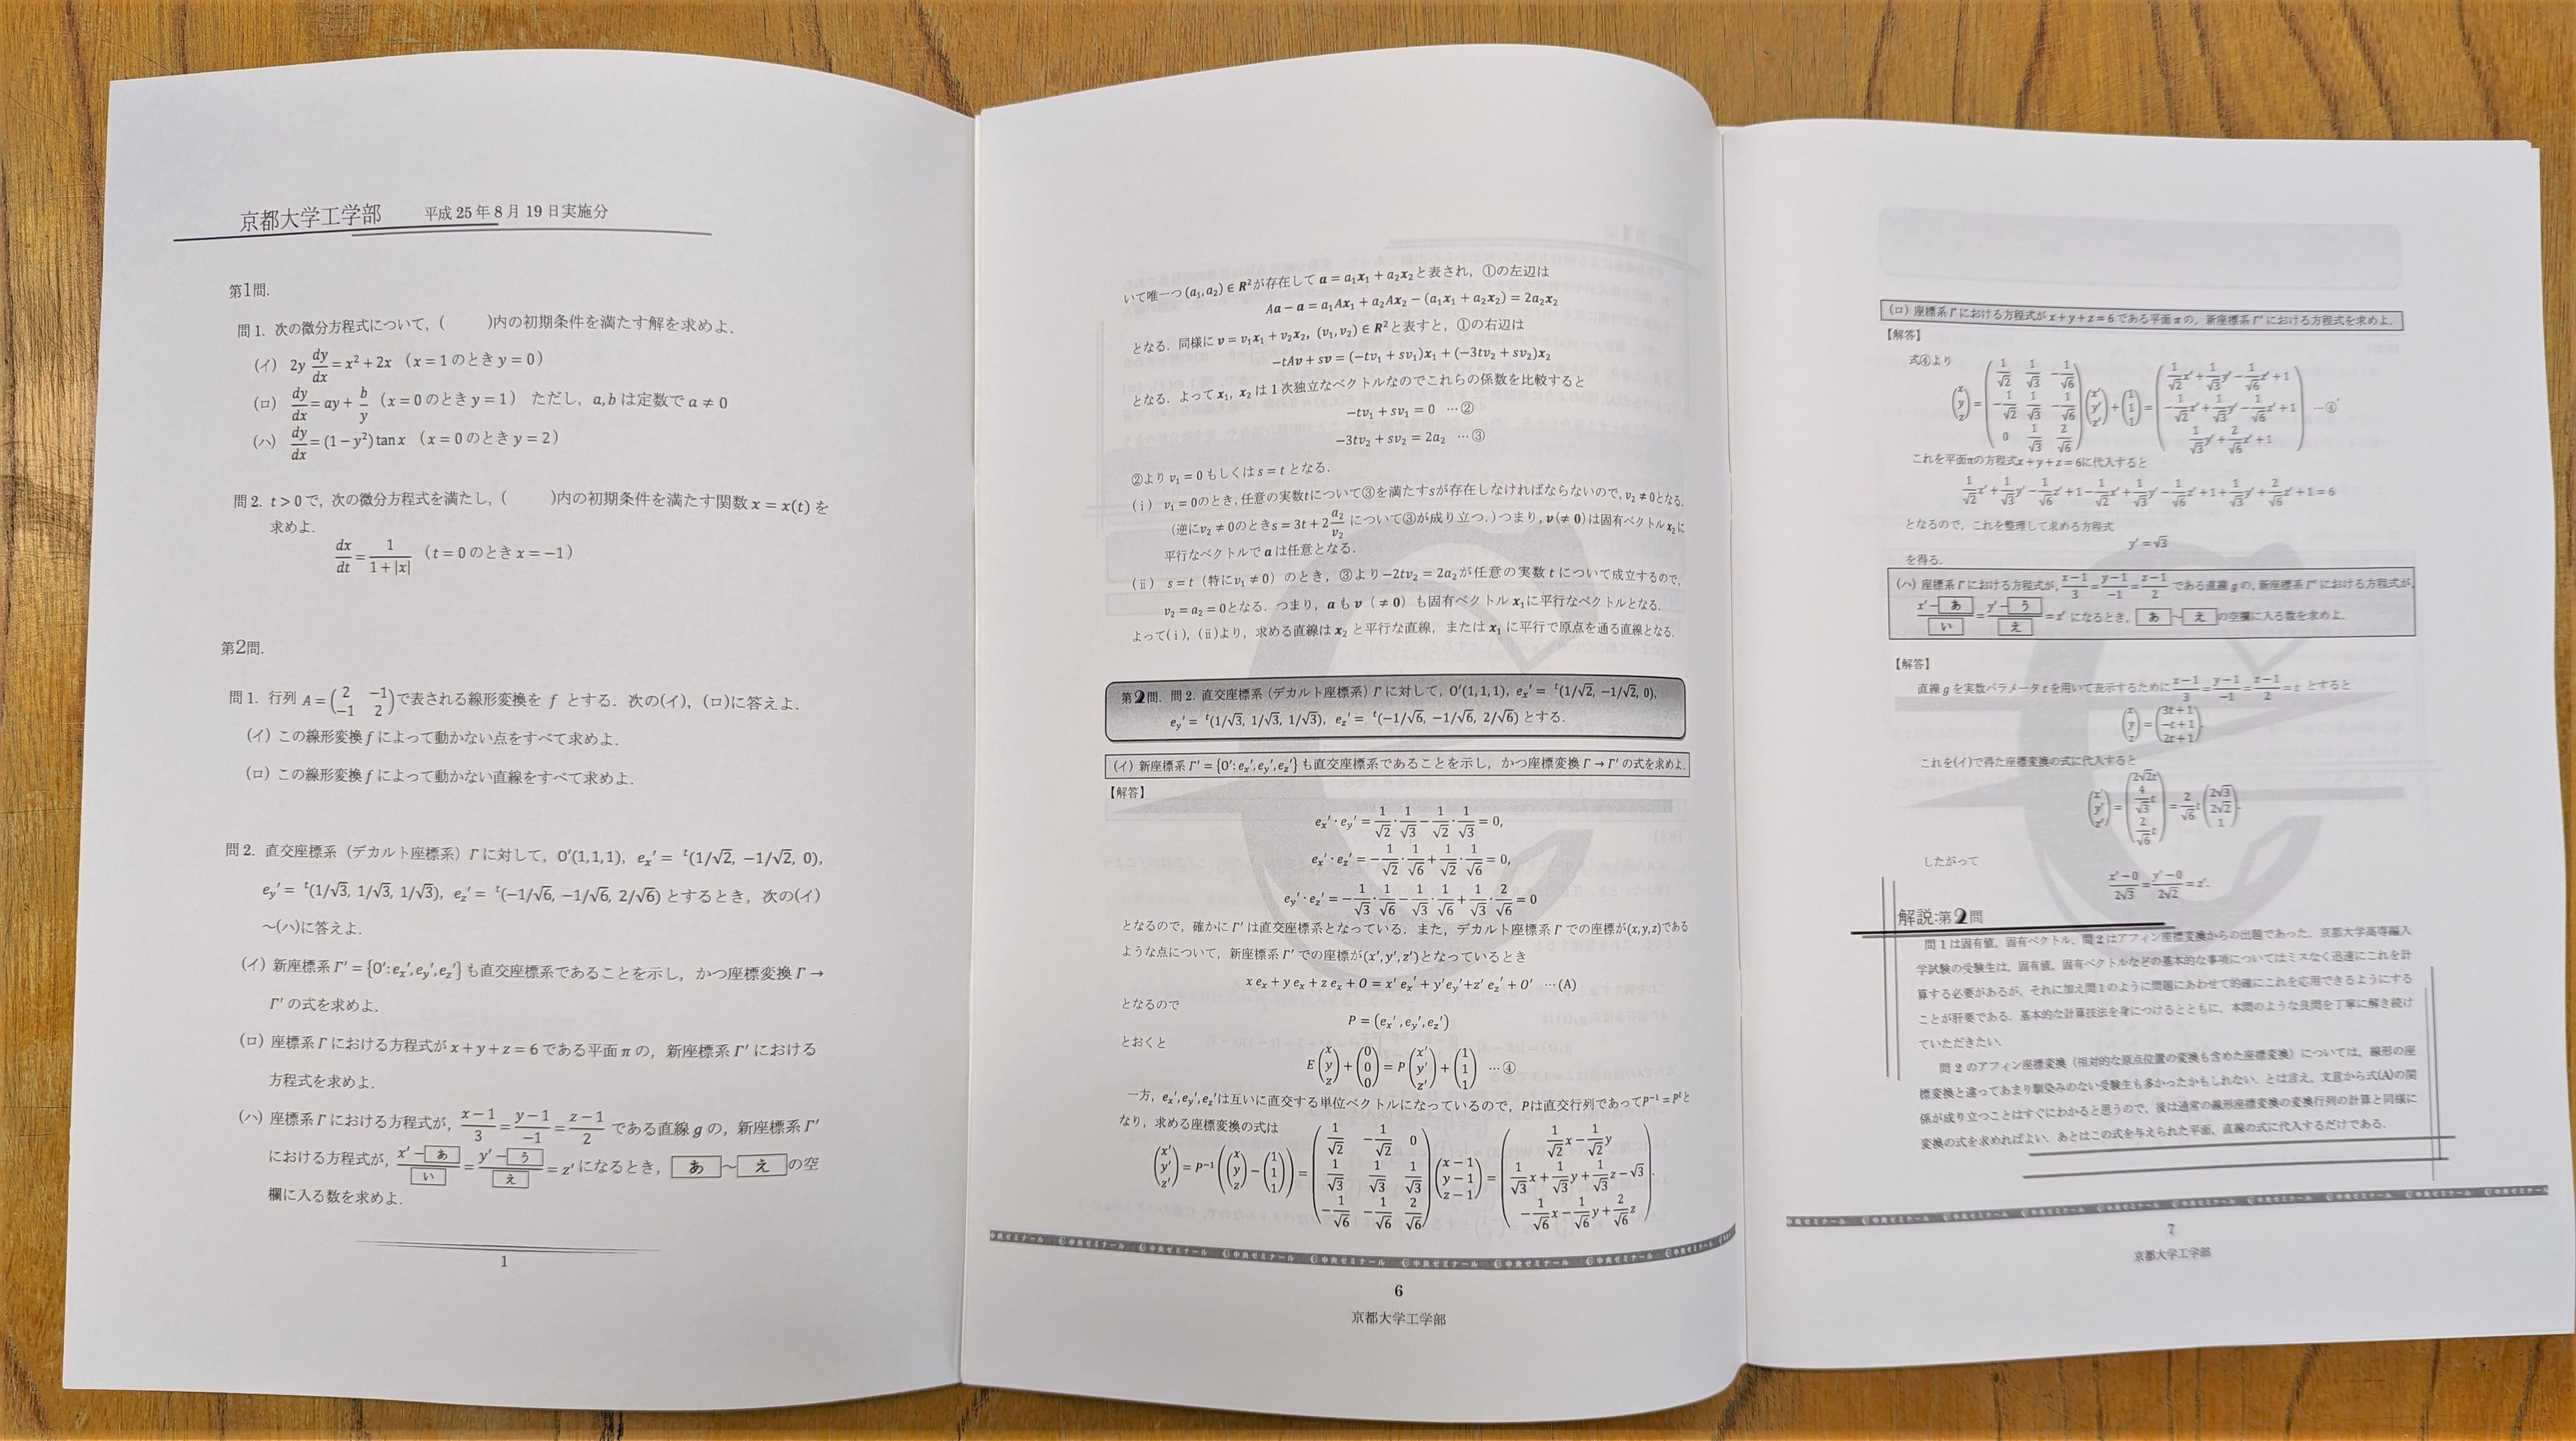 京都大学工学部 平成25年8月19日実施分
第1問.
問1. 次の微分方程式について，( )内の初期条件を満たす解を求めよ．
(イ) 2y dy/dx = x² + 2x （x = 1 のとき y = 0）
(ロ) dy/dx = ay + b/y （x = 0 のとき y = 1） ただし，a, b は定数で a ≠ 0
(ハ) dy/dx = (1 − y²) tan x （x = 0 のとき y = 2）
問2. t > 0 で，次の微分方程式を満たし，( )内の初期条件を満たす関数 x = x(t) を
求めよ．
dx/dt = 1/(1 + |x|) （t = 0 のとき x = −1）
第2問.
問1. 行列 A = (2 −1; −1 2) で表される線形変換を f とする．次の(イ)，(ロ)に答えよ．
(イ) この線形変換 f によって動かない点をすべて求めよ．
(ロ) この線形変換 f によって動かない直線をすべて求めよ．
問2. 直交座標系（デカルト座標系）Γ に対して，O′(1,1,1)，eₓ′ = ᵗ(1/√2, −1/√2, 0)，
e_y′ = ᵗ(1/√3, 1/√3, 1/√3)，e_z′ = ᵗ(−1/√6, −1/√6, 2/√6) とするとき，次の(イ)
～(ハ)に答えよ．
(イ) 新座標系 Γ′ = {O′: eₓ′, e_y′, e_z′} も直交座標系であることを示し，かつ座標変換 Γ →
Γ′ の式を求めよ．
(ロ) 座標系 Γ における方程式が x + y + z = 6 である平面 π の，新座標系 Γ′ における
方程式を求めよ．
(ハ) 座標系 Γ における方程式が，(x−1)/3 = (y−1)/−1 = (z−1)/2 である直線 g の，新座標系 Γ′
における方程式が，(x′−あ)/い = (y′−う)/え = z′ になるとき，あ ～ え の空
欄に入る数を求めよ．
1
いて唯一つ (a₁, a₂) ∈ R² が存在して a = a₁x₁ + a₂x₂ と表され，①の左辺は
Aa − a = a₁Ax₁ + a₂Ax₂ − (a₁x₁ + a₂x₂) = 2a₂x₂
となる．同様に v = v₁x₁ + v₂x₂, (v₁, v₂) ∈ R² と表すと，①の右辺は
−tAv + sv = (−tv₁ + sv₁)x₁ + (−3tv₂ + sv₂)x₂
となる．よって x₁, x₂ は1次独立なベクトルなのでこれらの係数を比較すると
−tv₁ + sv₁ = 0 …②
−3tv₂ + sv₂ = 2a₂ …③
②より v₁ = 0 もしくは s = t となる．
(ⅰ) v₁ = 0 のとき，任意の実数 t について③を満たす s が存在しなければならないので，v₂ ≠ 0 となる．
(逆に v₂ ≠ 0 のとき s = 3t + 2 a₂/v₂ について③が成り立つ．) つまり，v (≠ 0) は固有ベクトル x₂ に
平行なベクトルで a は任意となる．
(ⅱ) s = t（特に v₁ ≠ 0）のとき，③より −2tv₂ = 2a₂ が任意の実数 t について成立するので，
v₂ = a₂ = 0 となる．つまり，a も v（≠ 0）も固有ベクトル x₁ に平行なベクトルとなる．
よって(ⅰ)，(ⅱ)より，求める直線は x₂ と平行な直線，または x₁ に平行で原点を通る直線となる．
第2問．問2. 直交座標系（デカルト座標系）Γ に対して，O′(1,1,1)，eₓ′ = ᵗ(1/√2, −1/√2, 0)，
e_y′ = ᵗ(1/√3, 1/√3, 1/√3)，e_z′ = ᵗ(−1/√6, −1/√6, 2/√6) とする．
(イ) 新座標系 Γ′ = {O′: eₓ′, e_y′, e_z′} も直交座標系であることを示し，かつ座標変換 Γ → Γ′ の式を求めよ．
【解答】
eₓ′ · e_y′ = 1/√2 · 1/√3 − 1/√2 · 1/√3 = 0,
eₓ′ · e_z′ = −1/√2 · 1/√6 + 1/√2 · 1/√6 = 0,
e_y′ · e_z′ = −1/√3 · 1/√6 − 1/√3 · 1/√6 + 1/√3 · 2/√6 = 0
となるので，確かに Γ′ は直交座標系となっている．また，デカルト座標系 Γ での座標が (x, y, z) である
ような点について，新座標系 Γ′ での座標が (x′, y′, z′) となっているとき
x eₓ + y eₓ + z eₓ + O = x′ eₓ′ + y′ e_y′ + z′ e_z′ + O′ …(A)
となるので
P = (eₓ′, e_y′, e_z′)
とおくと
E (x; y; z) + (0; 0; 0) = P (x′; y′; z′) + (1; 1; 1) …④
一方，eₓ′, e_y′, e_z′ は互いに直交する単位ベクトルになっているので，P は直交行列であって P⁻¹ = Pᵗ と
なり，求める座標変換の式は
(x′; y′; z′) = P⁻¹((x; y; z) − (1; 1; 1)) = (1/√2 −1/√2 0; 1/√3 1/√3 1/√3; −1/√6 −1/√6 2/√6)(x−1; y−1; z−1) = (1/√2 x − 1/√2 y; 1/√3 x + 1/√3 y + 1/√3 z − √3; −1/√6 x − 1/√6 y + 2/√6 z).
中央ゼミナール 中央ゼミナール 中央ゼミナール 中央ゼミナール 中央ゼミナール 中央ゼミナール 中央ゼミナール 中央ゼミナール
6
京都大学工学部
(ロ) 座標系 Γ における方程式が x + y + z = 6 である平面 π の，新座標系 Γ′ における方程式を求めよ．
【解答】
式④より
(x; y; z) = (1/√2 1/√3 −1/√6; −1/√2 1/√3 −1/√6; 0 1/√3 2/√6)(x′; y′; z′) + (1; 1; 1) = (1/√2 x′ + 1/√3 y′ − 1/√6 z′ + 1; −1/√2 x′ + 1/√3 y′ − 1/√6 z′ + 1; 1/√3 y′ + 2/√6 z′ + 1) …④′
これを平面πの方程式 x + y + z = 6 に代入すると
1/√2 x′ + 1/√3 y′ − 1/√6 z′ + 1 − 1/√2 x′ + 1/√3 y′ − 1/√6 z′ + 1 + 1/√3 y′ + 2/√6 z′ + 1 = 6
となるので，これを整理して求める方程式
y′ = √3
を得る．
(ハ) 座標系 Γ における方程式が，(x−1)/3 = (y−1)/−1 = (z−1)/2 である直線 g の，新座標系 Γ′ における方程式が，
(x′−あ)/い = (y′−う)/え = z′ になるとき，あ ～ え の空欄に入る数を求めよ．
【解答】
直線 g を実数パラメータ t を用いて表示するために (x−1)/3 = (y−1)/−1 = (z−1)/2 = t とすると
(x; y; z) = (3t+1; −t+1; 2t+1).
これを(イ)で得た座標変換の式に代入すると
(x′; y′; z′) = (2√2t; 4/√3 t; 2/√6 t) = 2/√6 t (2√3; 2√2; 1).
したがって
(x′−0)/2√3 = (y′−0)/2√2 = z′.
解説:第2問
問1は固有値，固有ベクトル，問2はアフィン座標変換からの出題であった．京都大学高専編入
学試験の受験生は，固有値，固有ベクトルなどの基本的な事項についてはミスなく迅速にこれを計
算する必要があるが，それに加え問1のように問題にあわせて的確にこれを応用できるようにする
ことが肝要である．基本的な計算技法を身につけるとともに，本問のような良問を丁寧に解き続け
ていただきたい．
問2のアフィン座標変換（相対的な原点位置の変換も含めた座標変換）については，線形の座
標変換と違ってあまり馴染みのない受験生も多かったかもしれない．とは言え，文意から式(A)の関
係が成り立つことはすぐにわかると思うので，後は通常の線形座標変換の変換行列の計算と同様に
変換の式を求めればよい．あとはこの式を与えられた平面，直線の式に代入するだけである．
中央ゼミナール 中央ゼミナール 中央ゼミナール 中央ゼミナール 中央ゼミナール 中央ゼミナール 中央ゼミナール 中央ゼミナール
7
京都大学工学部